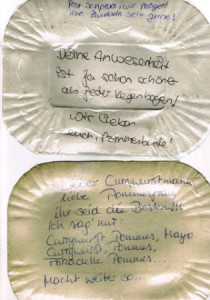 Post Scriptum: wir mögen
ihre Currywurst sehr gerne!
Deine Anwesenheit
ist ja schon schöner
als jeder Regenbogen!
Wir lieben
euch, Pommesbande!
Lieber Currywurstmann
liebe
ihr seid die Besten!!!
Ich sag' nur:
Currywurst, Pommes, Mayo
Currywurst, Pommes,
Frikadelle Pommes...
Macht weiter so...